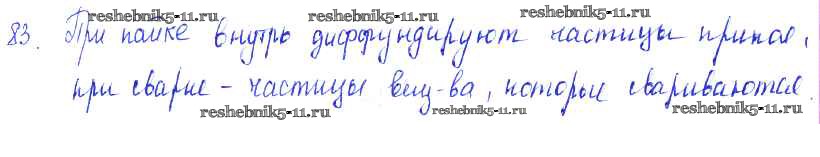 reshebnik5-11.ru reshebnik5-11.ru reshebnik5-11.ru
83. При пайке внутрь диффундируют частицы припоя,
при сварке - частицы вещ-ва, которые свариваются.
reshebnik5-11.ru reshebnik5-11.ru reshebnik5-11.ru